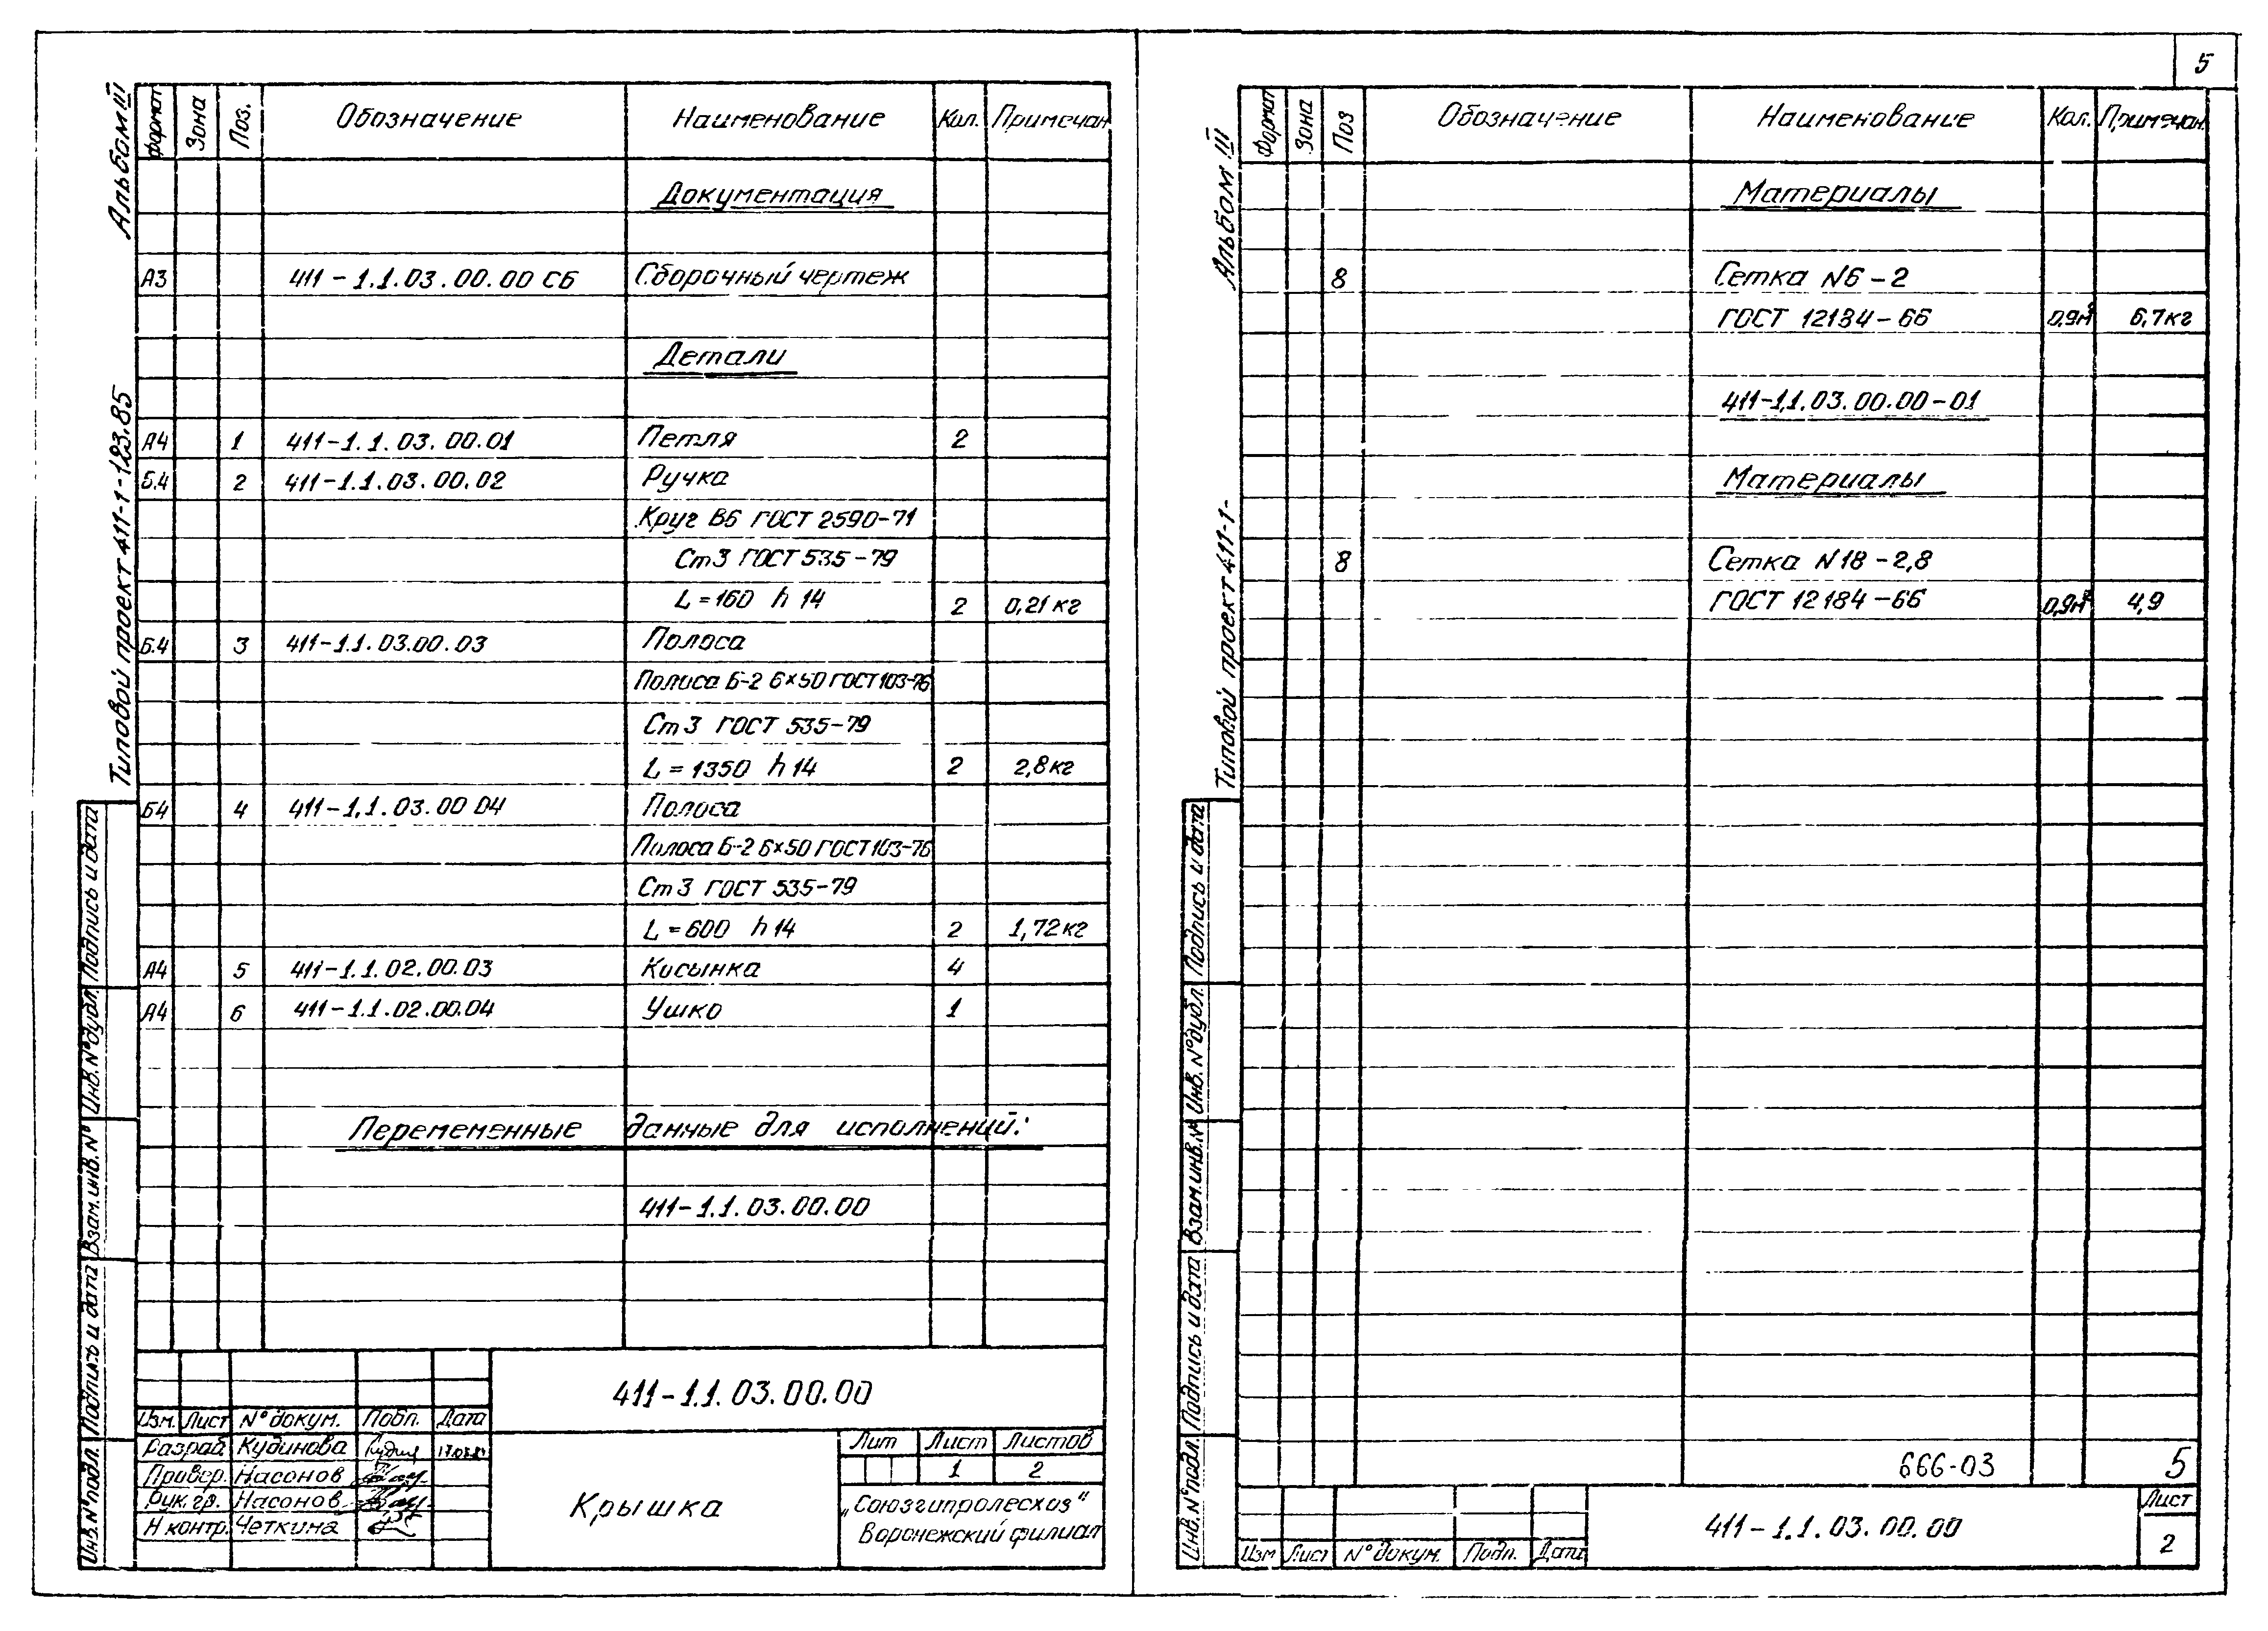 5
Альбом III
Типовой проект 411-1-123.85
Формат Зона Поз. Обозначение Наименование Кол. Примечан
Документация
А3 411-1.1.03.00.00 СБ Сборочный чертеж
Детали
А4 1 411-1.1.03.00.01 Петля 2
Б.4 2 411-1.1.03.00.02 Ручка
Круг В6 ГОСТ 2590-71
Ст3 ГОСТ 535-79
L=160 h14 2 0,21кг
Б.4 3 411-1.1.03.00.03 Полоса
Полоса Б-2 6×50 ГОСТ103-76
Ст3 ГОСТ 535-79
L=1350 h14 2 2,8кг
Б4 4 411-1.1.03.00 04 Полоса
Полоса Б-2 6×50 ГОСТ103-76
Ст3 ГОСТ 535-79
L=600 h14 2 1,72кг
А4 5 411-1.1.02.00.03 Косынка 4
А4 6 411-1.1.02.00.04 Ушко 1
Перемеменные данные для исполнений:
411-1.1.03.00.00
Подпись и дата
Инв.N°дубл.
Взам.инв.N°
Подпись и дата
Инв.N°подл.
411-1.1.03.00.00
Изм. Лист N°докум. Подп. Дата
Разраб Кудинова
Провер. Насонов
Рук.гр. Насонов
Н контр. Четкина
Крышка
Лит Лист Листов
1 2
„Союзгипролесхоз"
Воронежский филиал
Альбом III
Типовой проект 411-1-
Формат Зона Поз Обозначение Наименование Кол. Примечан.
Материалы
8 Сетка N6-2
ГОСТ 12184-66 0,9м² 6,7кг
411-1.1.03.00.00-01
Материалы
8 Сетка N18-2,8
ГОСТ 12184-66 0,9м² 4,9
Подпись и дата
Инв.N°дубл.
Взам.инв.N°
Подпись и дата
Инв.N°подл.
666-03 5
411-1.1.03.00.00
Лист
2
Изм Лист N°докум. Подп. Дата